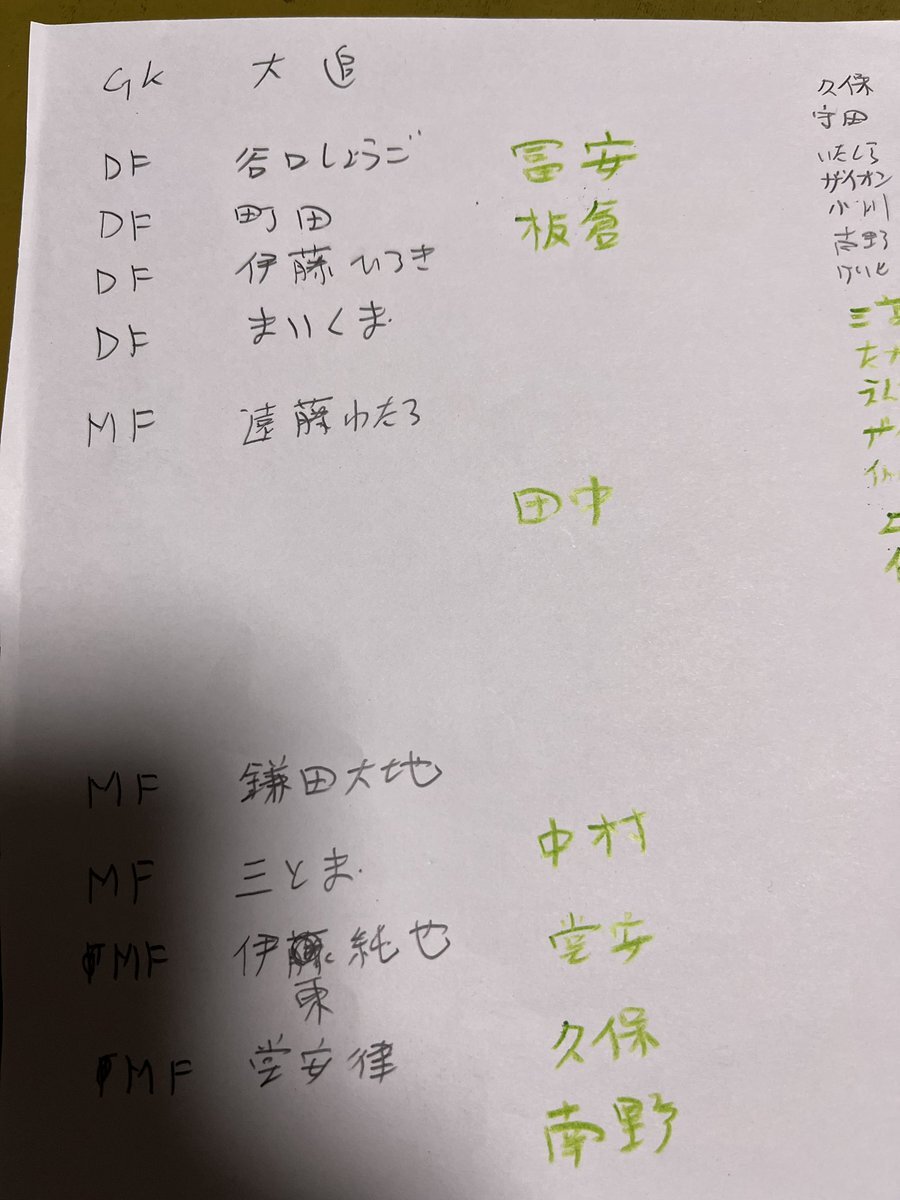 GK 大迫
DF 谷口しょうご
DF 町田
DF 伊藤ひろき
DF まいくま
MF 遠藤わたる
MF 鎌田大地
MF 三とま
MF 伊東純也
MF 堂安律
冨安
板倉
田中
中村
堂安
久保
南野
久保
守田
いたくら
ザイオン
小川
南野
けいと
三